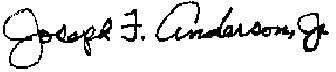 Joseph F. Anderson, Jr.